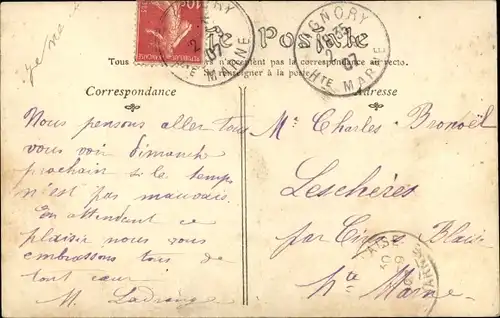 10c
Carte Postale
VIGNORY
HTE MARNE
Tous les pays n'acceptent pas la correspondance au recto.
Se renseigner à la poste
Correspondance
Adresse
Nous pensons aller tous
vous voir dimanche
prochain si le temps
n'est pas mauvais.
En attendant ce
plaisir nous vous
embrassons tous de
tout cœur
M. Ladrange
Mr Charles Bronoël
Leschères
par Cirey Blaise
Hte Marne